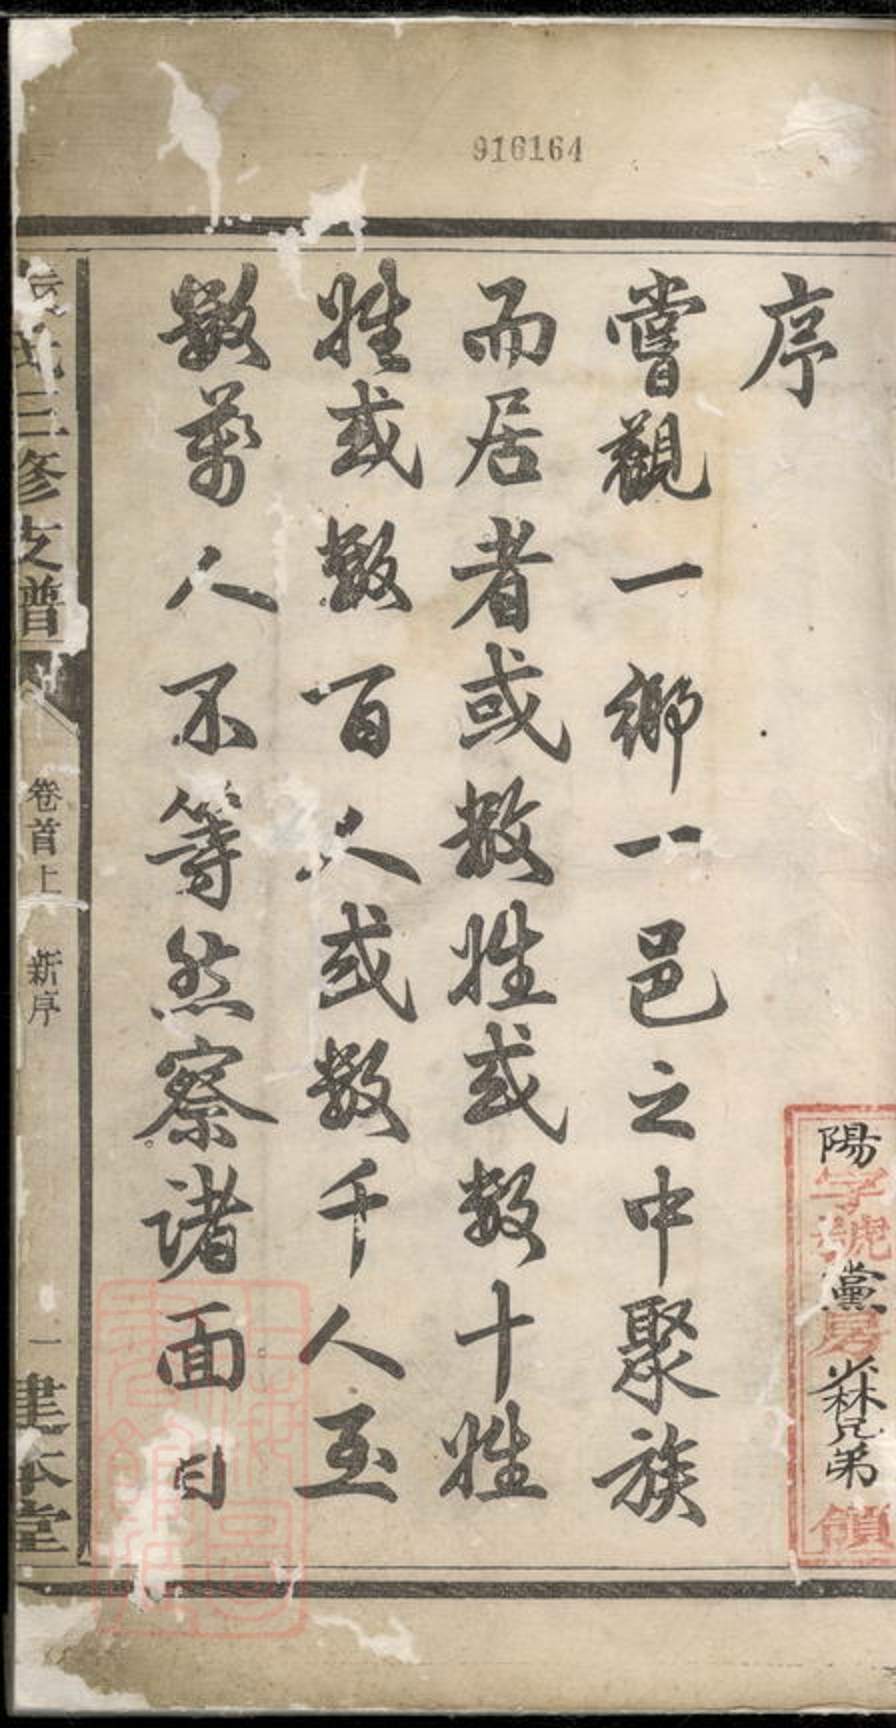 916164
序
嘗觀一鄉一邑之中聚族
而居者或數姓或數十姓
姓或數百人或數千人至
數萬人不等然察諸面目
陽字號黨房 森兄弟 領
氏三修支譜
卷首上 新序
一
建本堂